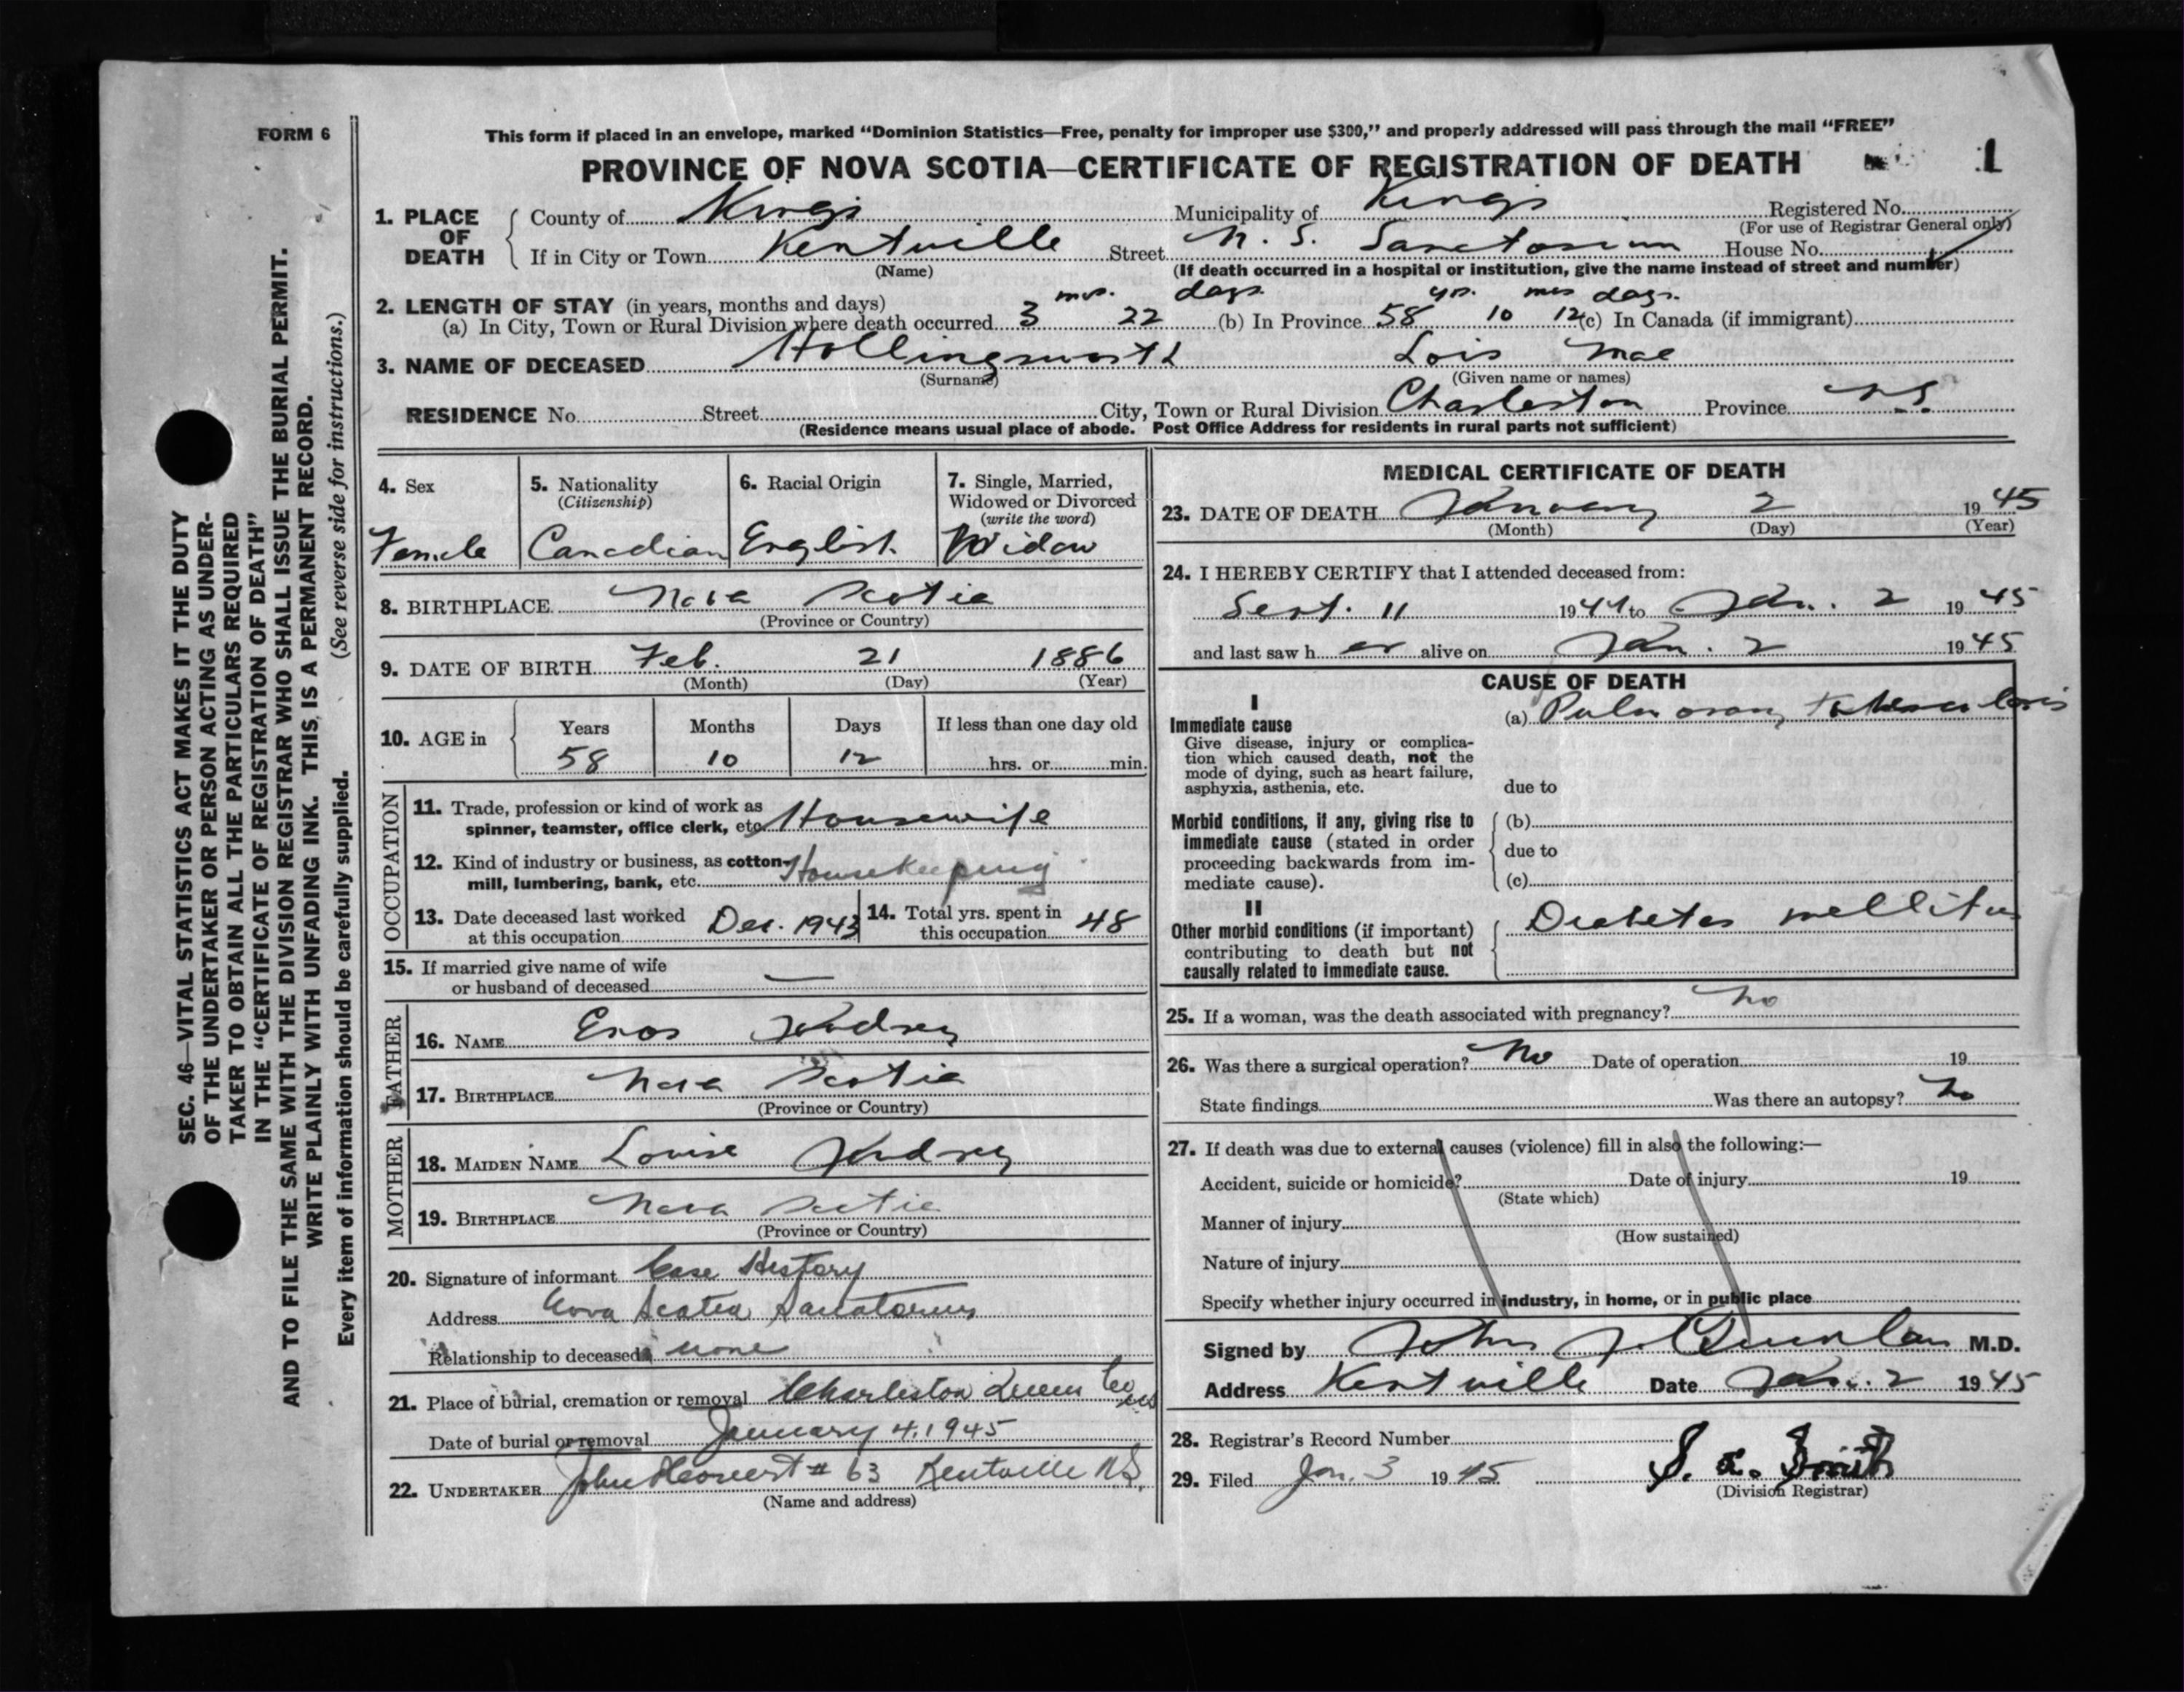 FORM 6
This form if placed in an envelope, marked “Dominion Statistics—Free, penalty for improper use $300,” and properly addressed will pass through the mail “FREE”
PROVINCE OF NOVA SCOTIA—CERTIFICATE OF REGISTRATION OF DEATH 1
SEC. 46—VITAL STATISTICS ACT MAKES IT THE DUTY
OF THE UNDERTAKER OR PERSON ACTING AS UNDER-
TAKER TO OBTAIN ALL THE PARTICULARS REQUIRED
IN THE “CERTIFICATE OF REGISTRATION OF DEATH”
AND TO FILE THE SAME WITH THE DIVISION REGISTRAR WHO SHALL ISSUE THE BURIAL PERMIT.
WRITE PLAINLY WITH UNFADING INK. THIS IS A PERMANENT RECORD.
Every item of information should be carefully supplied. (See reverse side for instructions.)
1. PLACE OF DEATH County of Kings Municipality of Kings Registered No.
(For use of Registrar General only)
If in City or Town Kentville Street N. S. Sanctorium House No.
(Name) (If death occurred in a hospital or institution, give the name instead of street and number)
2. LENGTH OF STAY (in years, months and days) mos. days. yrs. mos days.
(a) In City, Town or Rural Division where death occurred 3 22 (b) In Province 58 10 12 (c) In Canada (if immigrant)
3. NAME OF DECEASED Hollingsworth Lois Mae
(Surname) (Given name or names)
RESIDENCE No. Street City, Town or Rural Division Charleston Province N.S.
(Residence means usual place of abode. Post Office Address for residents in rural parts not sufficient)
4. Sex 5. Nationality 6. Racial Origin 7. Single, Married,
(Citizenship) Widowed or Divorced
(write the word)
Female Canadian English Widow
8. BIRTHPLACE Nova Scotia
(Province or Country)
9. DATE OF BIRTH Feb. 21 1886
(Month) (Day) (Year)
10. AGE in Years Months Days If less than one day old
58 10 12 hrs. or min.
OCCUPATION
11. Trade, profession or kind of work as
spinner, teamster, office clerk, etc. Housewife
12. Kind of industry or business, as cotton-
mill, lumbering, bank, etc. Housekeeping
13. Date deceased last worked
at this occupation Dec. 1943
14. Total yrs. spent in
this occupation 48
15. If married give name of wife
or husband of deceased —
FATHER
16. NAME Enos
17. BIRTHPLACE Nova Scotia
(Province or Country)
MOTHER
18. MAIDEN NAME Louise
19. BIRTHPLACE Nova Scotia
(Province or Country)
20. Signature of informant Case History
Address Nova Scotia Sanatorium
Relationship to deceased none
21. Place of burial, cremation or removal Charleston Queens Co
Date of burial or removal January 4, 1945
22. UNDERTAKER John # 63 Kentville NS.
(Name and address)
MEDICAL CERTIFICATE OF DEATH
23. DATE OF DEATH January 2 1945
(Month) (Day) (Year)
24. I HEREBY CERTIFY that I attended deceased from:
Sept. 11 1944 to Jan. 2 1945
and last saw h er alive on Jan. 2 1945
CAUSE OF DEATH
I
Immediate cause (a) Pulmonary Tuberculosis
Give disease, injury or complica-
tion which caused death, not the
mode of dying, such as heart failure,
asphyxia, asthenia, etc. due to
Morbid conditions, if any, giving rise to (b)
immediate cause (stated in order due to
proceeding backwards from im-
mediate cause). (c)
II
Other morbid conditions (if important) Diabetes mellitus
contributing to death but not
causally related to immediate cause.
25. If a woman, was the death associated with pregnancy? No
26. Was there a surgical operation? No Date of operation 19
State findings Was there an autopsy? No
27. If death was due to external causes (violence) fill in also the following:—
Accident, suicide or homicide? Date of injury 19
(State which)
Manner of injury
(How sustained)
Nature of injury
Specify whether injury occurred in industry, in home, or in public place
Signed by John J. Quinlan M.D.
Address Kentville Date Jan. 2 1945
28. Registrar’s Record Number
29. Filed Jan. 3 1945 Smith
(Division Registrar)